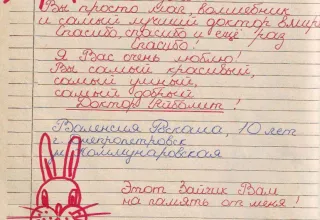 Вы просто маг, волшебник
и самый лучший доктор в мире
Спасибо, спасибо и ещё раз
Спасибо!
Я Вас очень люблю!
Вы самый красивый,
самый умный,
самый добрый
Доктор Айболит!
Валенсия 10 лет
г. Днепропетровск
ул. Коммунаровская
Этот Зайчик Вам
на память от меня!